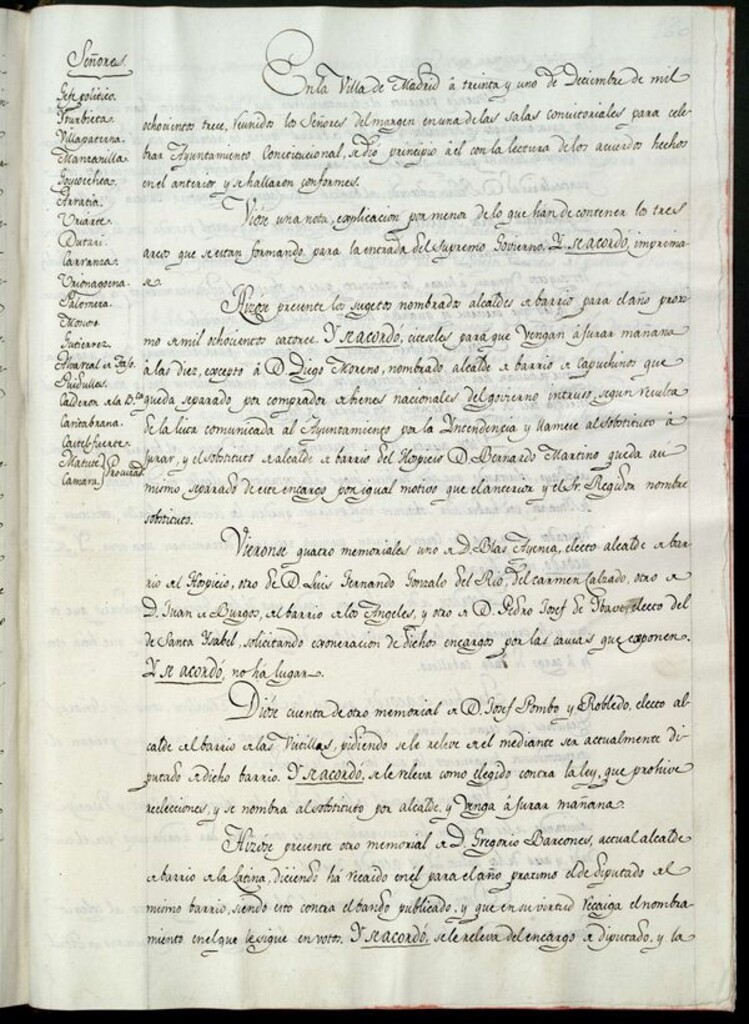 Señores
Gefe politico.
Yturbieta.
Villapaterna.
Manzanilla.
Goycoechea.
Arratia.
Uriarte.
Dutari.
Carranza.
Urionagoena.
Palomera.
Gutierrez.
Calderon de la B.ca
Cantabrana.
Castelfuerte.
Matute
Camara. } Procurad.
En la Villa de Madrid à treinta y uno de Deciembre de mil
ochocientos trece, reunidos los Señores del margen en una de las salas consistoriales para cele-
brar Ayuntamiento Constitucional, se dió principio à el con la lectura de los acuerdos hechos
en el anterior y se hallaron conformes.
Viose una nota, explicacion por menor de lo que han de contener los tres
arcos que se estan formando para la entrada del Supremo Govierno. Y se acordó, imprima-
se.
Hizose presente los sugetos nombrados alcaldes de barrio para el año proxi-
mo de mil ochocientos catorce. Y se acordó, citeseles para que vengan à jurar mañana
à las diez, excepto à D. Diego Moreno, nombrado alcalde de barrio de Capuchinos que
queda separado por comprador de bienes nacionales del govierno intruso, segun resulta
de la lista comunicada al Ayuntamiento por la Yntendencia y llamese al sobstituto à
jurar, y el sobstituto de alcalde de barrio del Hospicio D. Bernardo Martino queda asi
mismo separado de este encargo por igual motivo que el anterior y el Sr. Regidor nombre
sobstituto.
Vieronse quatro memoriales uno de D. Blas Ayensa, electo alcalde de bar-
rio del Hospicio, otro de D. Luis Fernando Gonzalo del Rio, del Carmen Calzado, otro de
D. Juan de Burgos, del barrio de los Angeles, y otro de D. Pedro Josef de Ybase, electo del
de Santa Ysabel, solicitando exoneracion de dichos encargos por las causas que exponen.
Y se acordó, no há lugar.
Diose cuenta de otro memorial de D. Josef Pombo y Robledo, electo al-
calde del barrio de las Vistillas, pidiendo se le releve de el mediante ser actualmente di-
putado de dicho barrio. Y se acordó, se le releva como elegido contra la ley, que prohive
reelecciones, y se nombra al sobstituto por alcalde, y venga à jurar mañana.
Hizose presente otro memorial de D. Gregorio Barcones, actual alcalde
de barrio de la Latina, diciendo há recaido en él para el año proximo el de diputado del
mismo barrio, siendo esto contra el bando publicado, y que en su virtud recaiga el nombra-
miento en el que le sigue en votos. Y se acordó, se le releva del encargo de diputado, y la